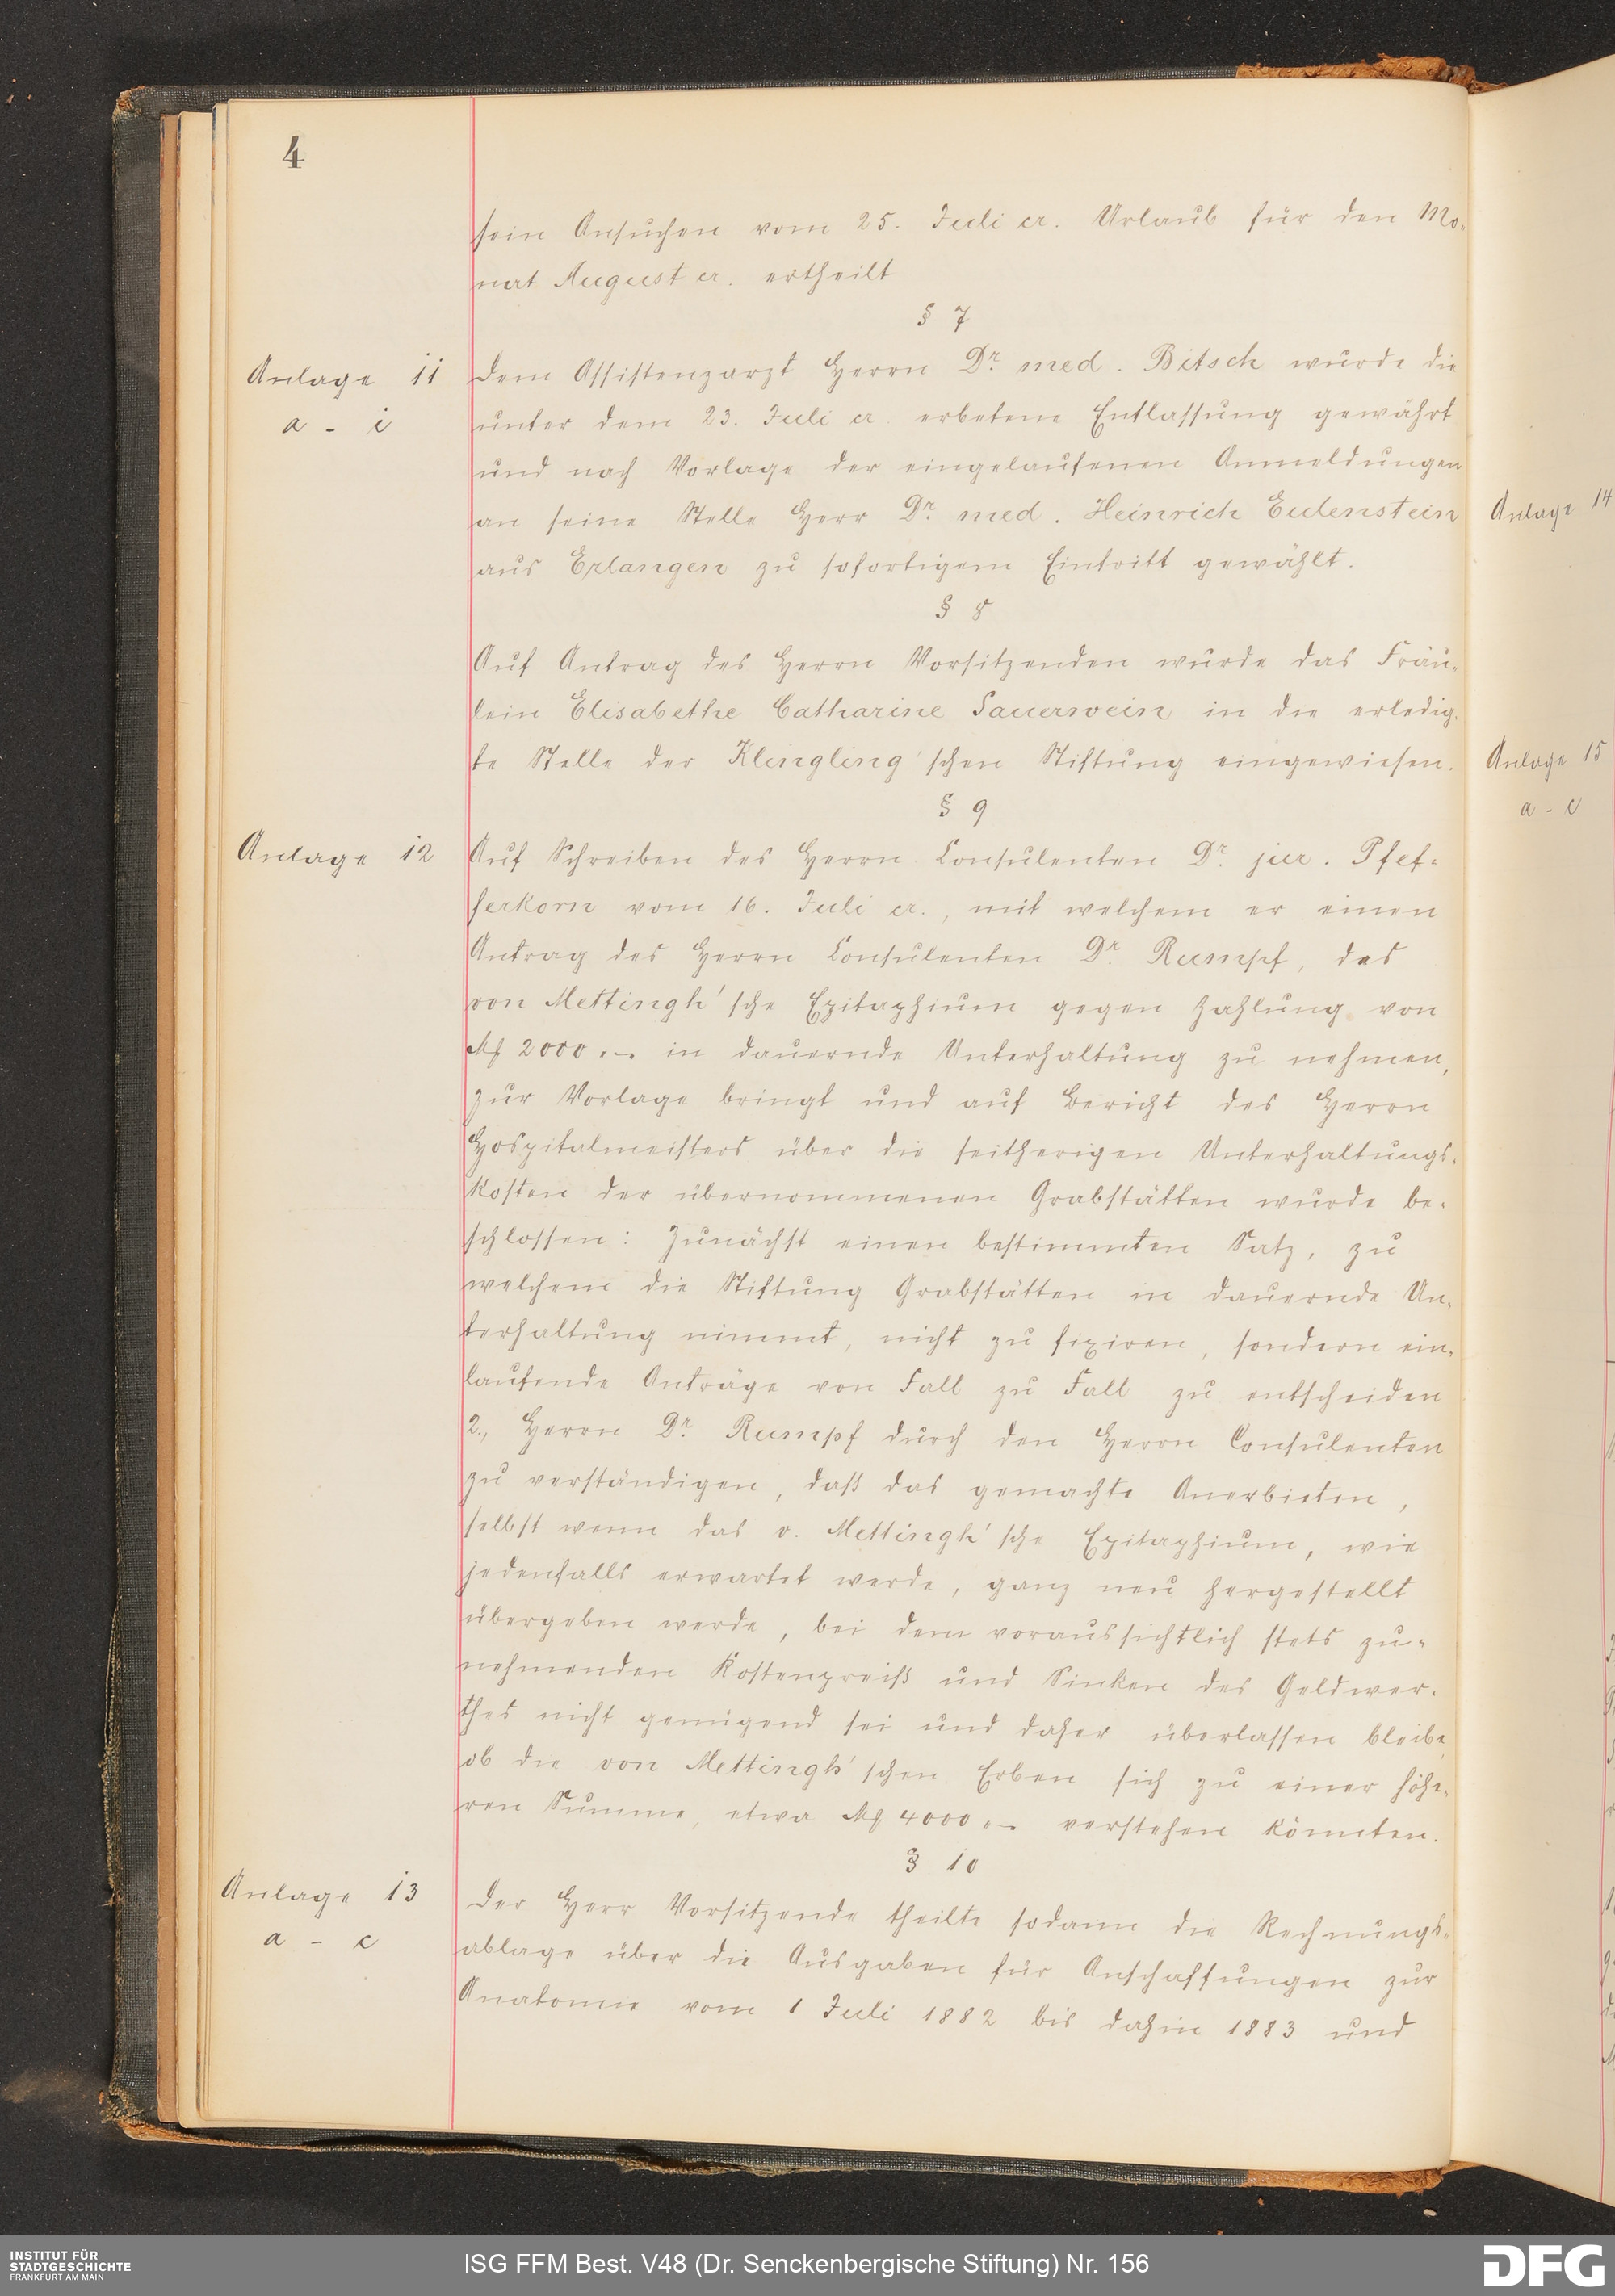 4
sein Ansuchen vom 25. Juli cr. Urlaub für den Mo-
nat August cr. ertheilt
§ 7
Anlage 11
a - i
Dem Assistenzarzt Herrn Dr. med. Bitsch wurde die
unter dem 23. Juli cr. erbetene Entlassung gewährt
und nach Vorlage der eingelaufenen Anmeldungen
an seine Stelle Herr Dr. med. Heinrich Eulenstein
aus Erlangen zu sofortigem Eintritt gewählt.
§ 8
Auf Antrag des Herrn Vorsitzenden wurde das Fräu-
lein Elisabethe Catharine Sauerwein in die erledig-
te Stelle der Klingling'schen Stiftung eingewiesen.
§ 9
Anlage 12
Auf Schreiben des Herrn Consulenten Dr. jur. Pfef-
ferkorn vom 16. Juli cr., mit welchem er einen
Antrag des Herrn Consulenten Dr. Rumpf, das
von Mettingh'sche Epitaphium gegen Zahlung von
M 2000.- in dauernde Unterhaltung zu nehmen,
zur Vorlage bringt und auf Bericht des Herrn
Hospitalmeisters über die seitherigen Unterhaltungs-
kosten der übernommenen Grabstätten wurde be-
schlossen: Zunächst einen bestimmten Satz, zu
welchem die Stiftung Grabstätten in dauernde Un-
terhaltung nimmt, nicht zu fixiren, sondern ein-
laufende Anträge von Fall zu Fall zu entscheiden
2., Herrn Dr. Rumpf durch den Herrn Consulenten
zu verständigen, daß das gemachte Anerbieten,
selbst wenn das v. Mettingh'sche Epitaphium, wie
jedenfalls erwartet werde, ganz neu hergestellt
übergeben werde, bei dem voraussichtlich stets zu-
nehmenden Kostenpreiß und Sinken des Geldwer-
thes nicht genügend sei und daher überlassen bleibe,
ob die von Mettingh'schen Erben sich zu einer höhe-
ren Summe, etwa M 4000.- verstehen könnten.
§ 10
Anlage 13
a - c
Der Herr Vorsitzende theilte sodann die Rechnungs-
ablage über die Ausgaben für Anschaffungen zur
Anatomie vom 1 Juli 1882 bis dahin 1883 und
Anlage 14
Anlage 15
a - c
INSTITUT FÜR
STADTGESCHICHTE
FRANKFURT AM MAIN
ISG FFM Best. V48 (Dr. Senckenbergische Stiftung) Nr. 156
DFG